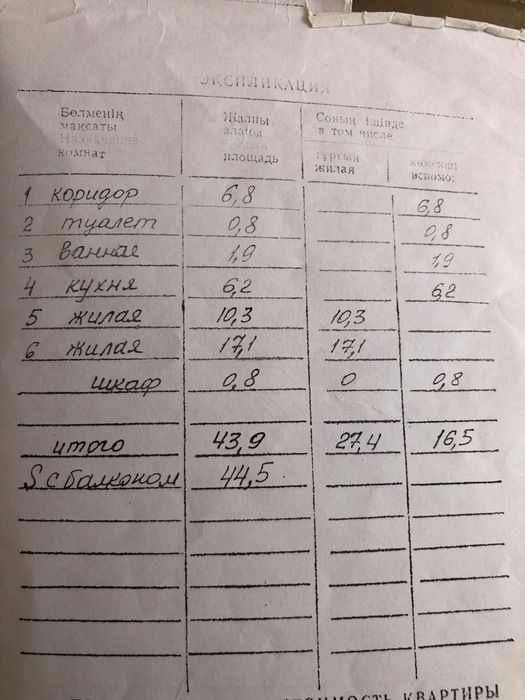 ЭКСПЛИКАЦИЯ
Бөлменің мақсаты Назначение комнат
Жалпы алаңы общая площадь
Соның ішінде в том числе
тұрғын жилая
көмекші вспомог
1 коридор 6,8 6,8
2 туалет 0,8 0,8
3 ванная 1,9 1,9
4 кухня 6,2 6,2
5 жилая 10,3 10,3
6 жилая 17,1 17,1
шкаф 0,8 0 0,8
итого 43,9 27,4 16,5
S с балконом 44,5
СТОИМОСТЬ КВАРТИРЫ